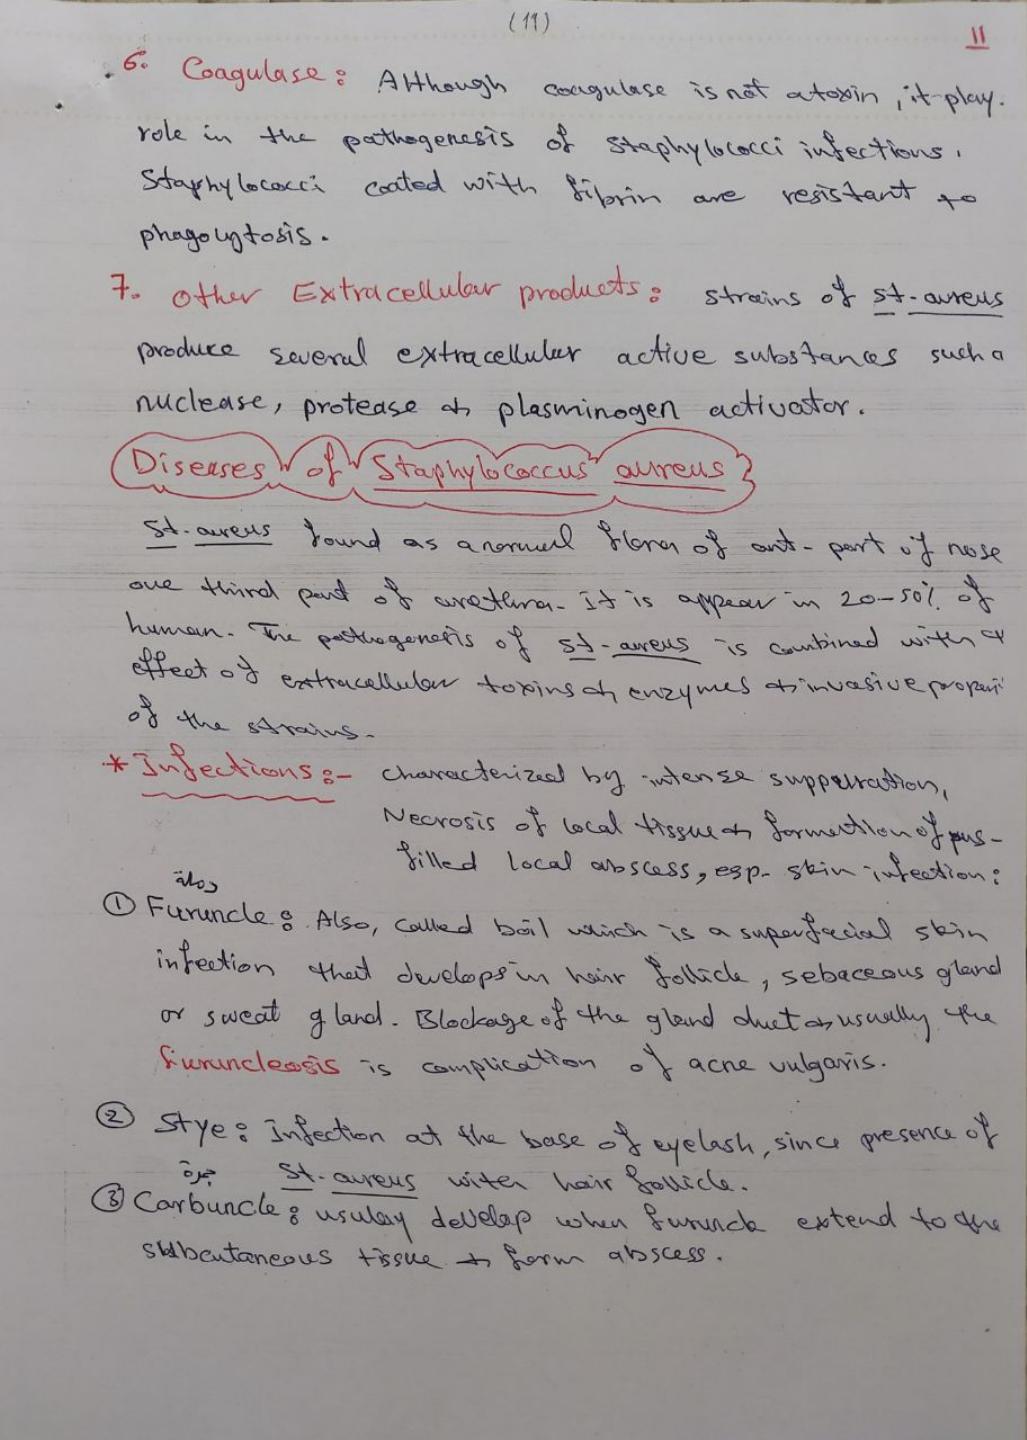 (11)
11
6. Coagulase: Although coagulase is not a toxin, it play.
role in the pathogenesis of staphylococci infections.
Staphylococci coated with fibrin are resistant to
phagocytosis.
7. Other Extracellular products: strains of st. aureus
produce several extracellular active substances such a
nuclease, protease & plasminogen activator.
Diseases of Staphylococcus aureus
St. aureus found as a normal flora of ant. part of nose
one third part of urethra. it is appear in 20-50% of
human. The pathogenesis of st. aureus is combined with
effect of extracellular toxins & enzymes & invasive properi
of the strains.
* Infections:- characterized by intense suppuration,
Necrosis of local tissue & formation of pus-
filled local abscess, esp. skin infection:
دمالة
① Furuncle: Also, called boil which is a superfacial skin
infection that develops in hair follicle, sebaceous gland
or sweat gland. Blockage of the gland duct & usually the
furuncleosis is complication of acne vulgaris.
② Stye: Infection at the base of eyelash, since presence of
St. aureus with hair follicle.
③ Carbuncle: usulay develop when furuncle extend to the
subcutaneous tissue & form abscess.